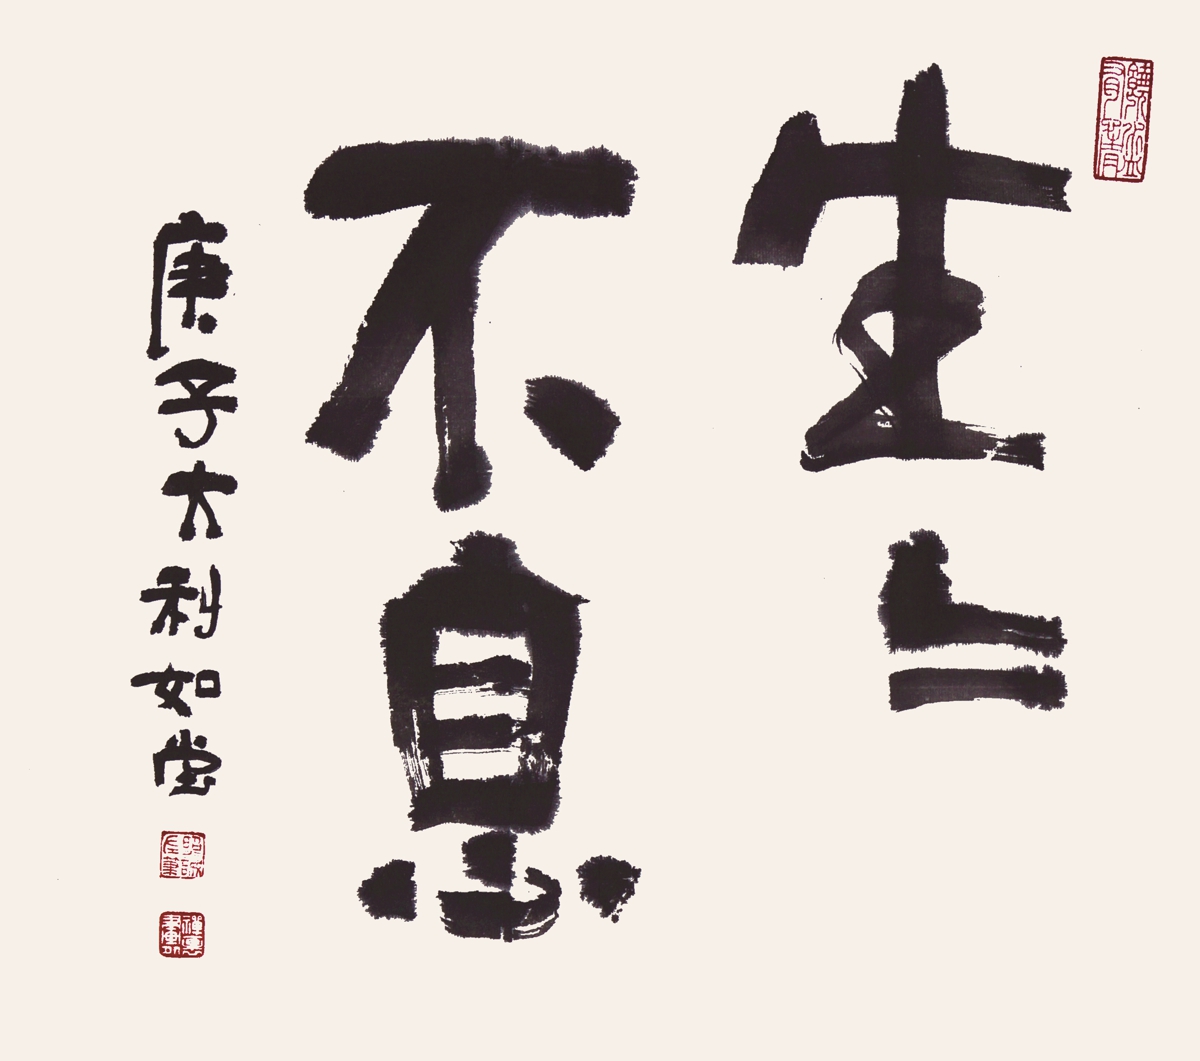 生〻
不息
庚子大利如堂